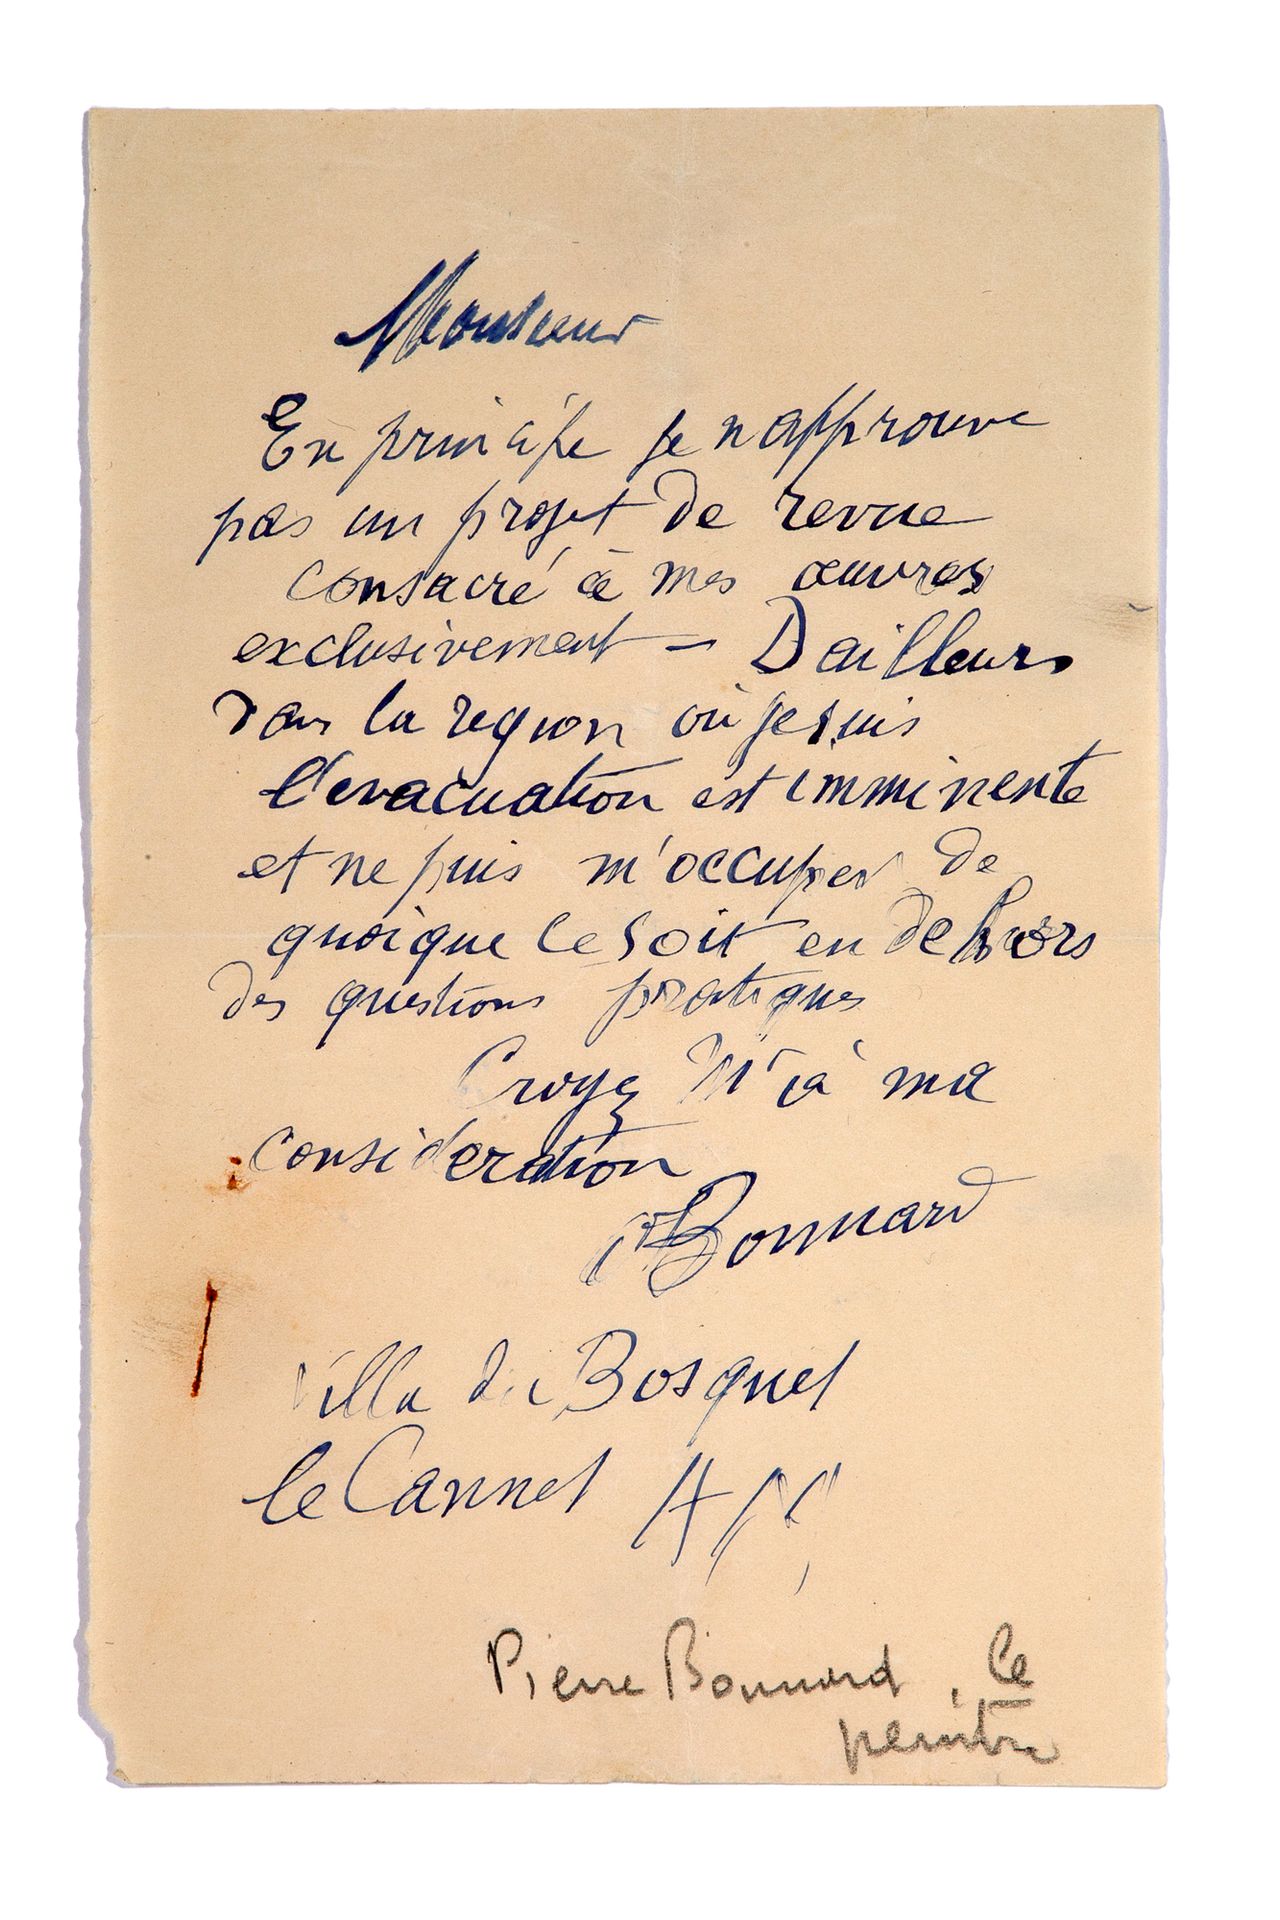 Monsieur
En principe je n approuve
pas un projet de revue
consacré à mes œuvres
exclusivement – Dailleurs
dans la region où je suis
l'evacuation est imminente
et ne puis m'occuper de
quoique ce soit en dehors
des questions pratiques
Croyez Mr à ma
consideration
PBonnard
Villa du Bosquet
le Cannet AM
Pierre Bonnard, le
peintre